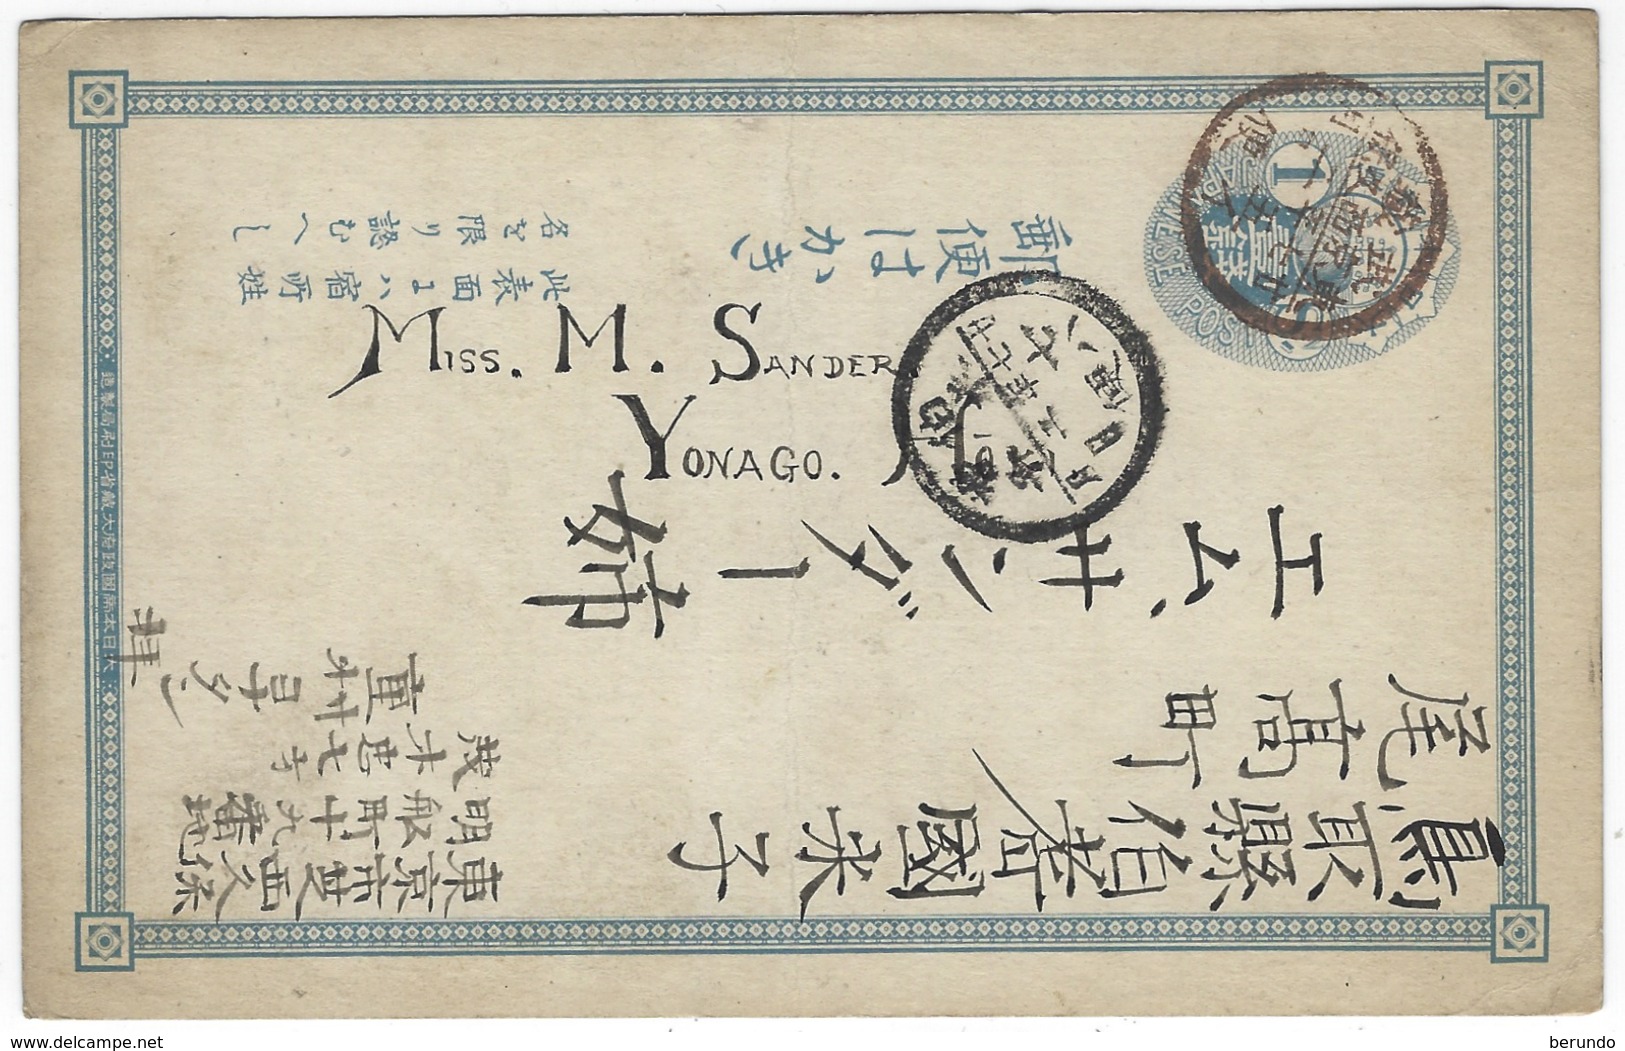 Miss. M. Sander.
Yonago.
鳥取縣伯耆國米子
尾高町
エム、サンダー姉
東京市芝西久保
明舟町十九番地
茂木忠七方
重村ヨナタン
拝
郵便はかき
此表面ニハ宿所姓
名を限り認むへし
大日本帝國政府大蔵省印刷局製造
JAPANESE POST
1
delcampe.net
berundo